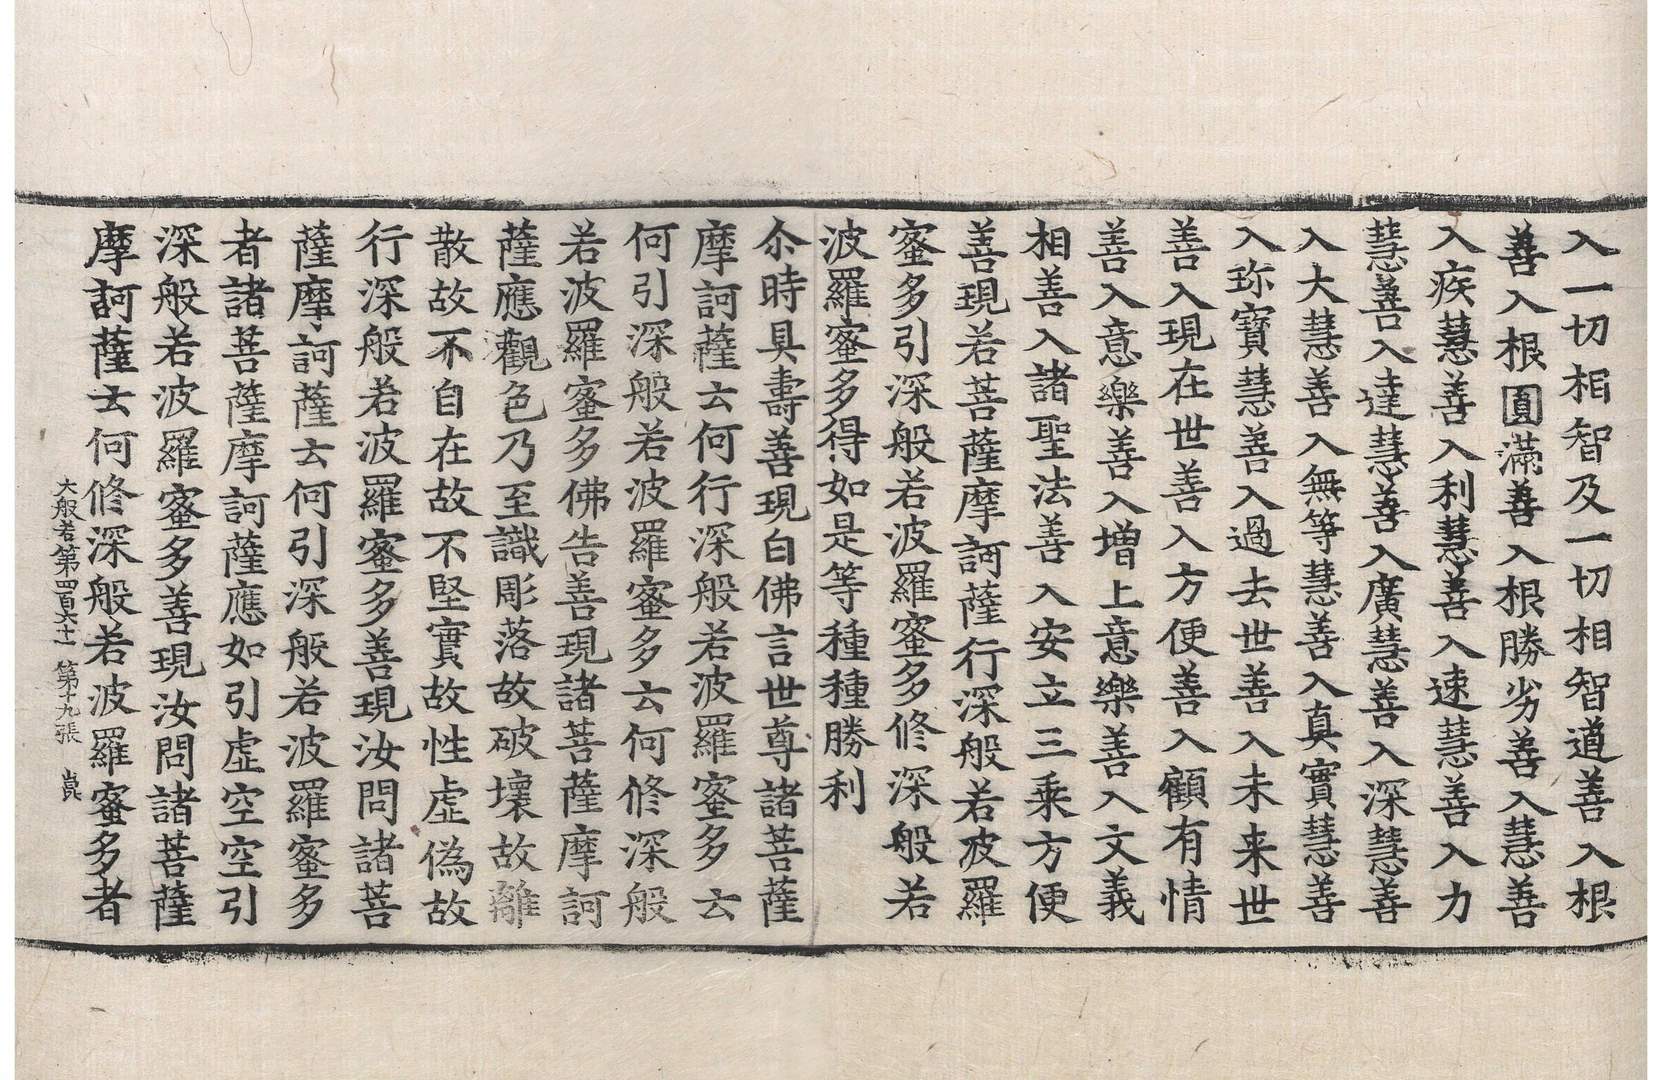 入一切相智及一切相智道善入根
善入根圓滿善入根勝劣善入慧善
入疾慧善入利慧善入速慧善入力
慧善入達慧善入廣慧善入深慧善
入大慧善入無等慧善入真實慧善
入珎寶慧善入過去世善入未来世
善入現在世善入方便善入顧有情
善入意樂善入增上意樂善入文義
相善入諸聖法善入安立三乘方便
善現若菩薩摩訶薩行深般若波羅
蜜多引深般若波羅蜜多修深般若
波羅蜜多得如是等種種勝利
尒時具壽善現白佛言世尊諸菩薩
摩訶薩云何行深般若波羅蜜多云
何引深般若波羅蜜多云何修深般
若波羅蜜多佛告善現諸菩薩摩訶
薩應觀色乃至識彫落故破壞故離
散故不自在故不堅實故性虛偽故
行深般若波羅蜜多善現汝問諸菩
薩摩訶薩云何引深般若波羅蜜多
者諸菩薩摩訶薩應如引虛空空引
深般若波羅蜜多善現汝問諸菩薩
摩訶薩云何修深般若波羅蜜多者
大般若第四百六十一 第十九張 崑